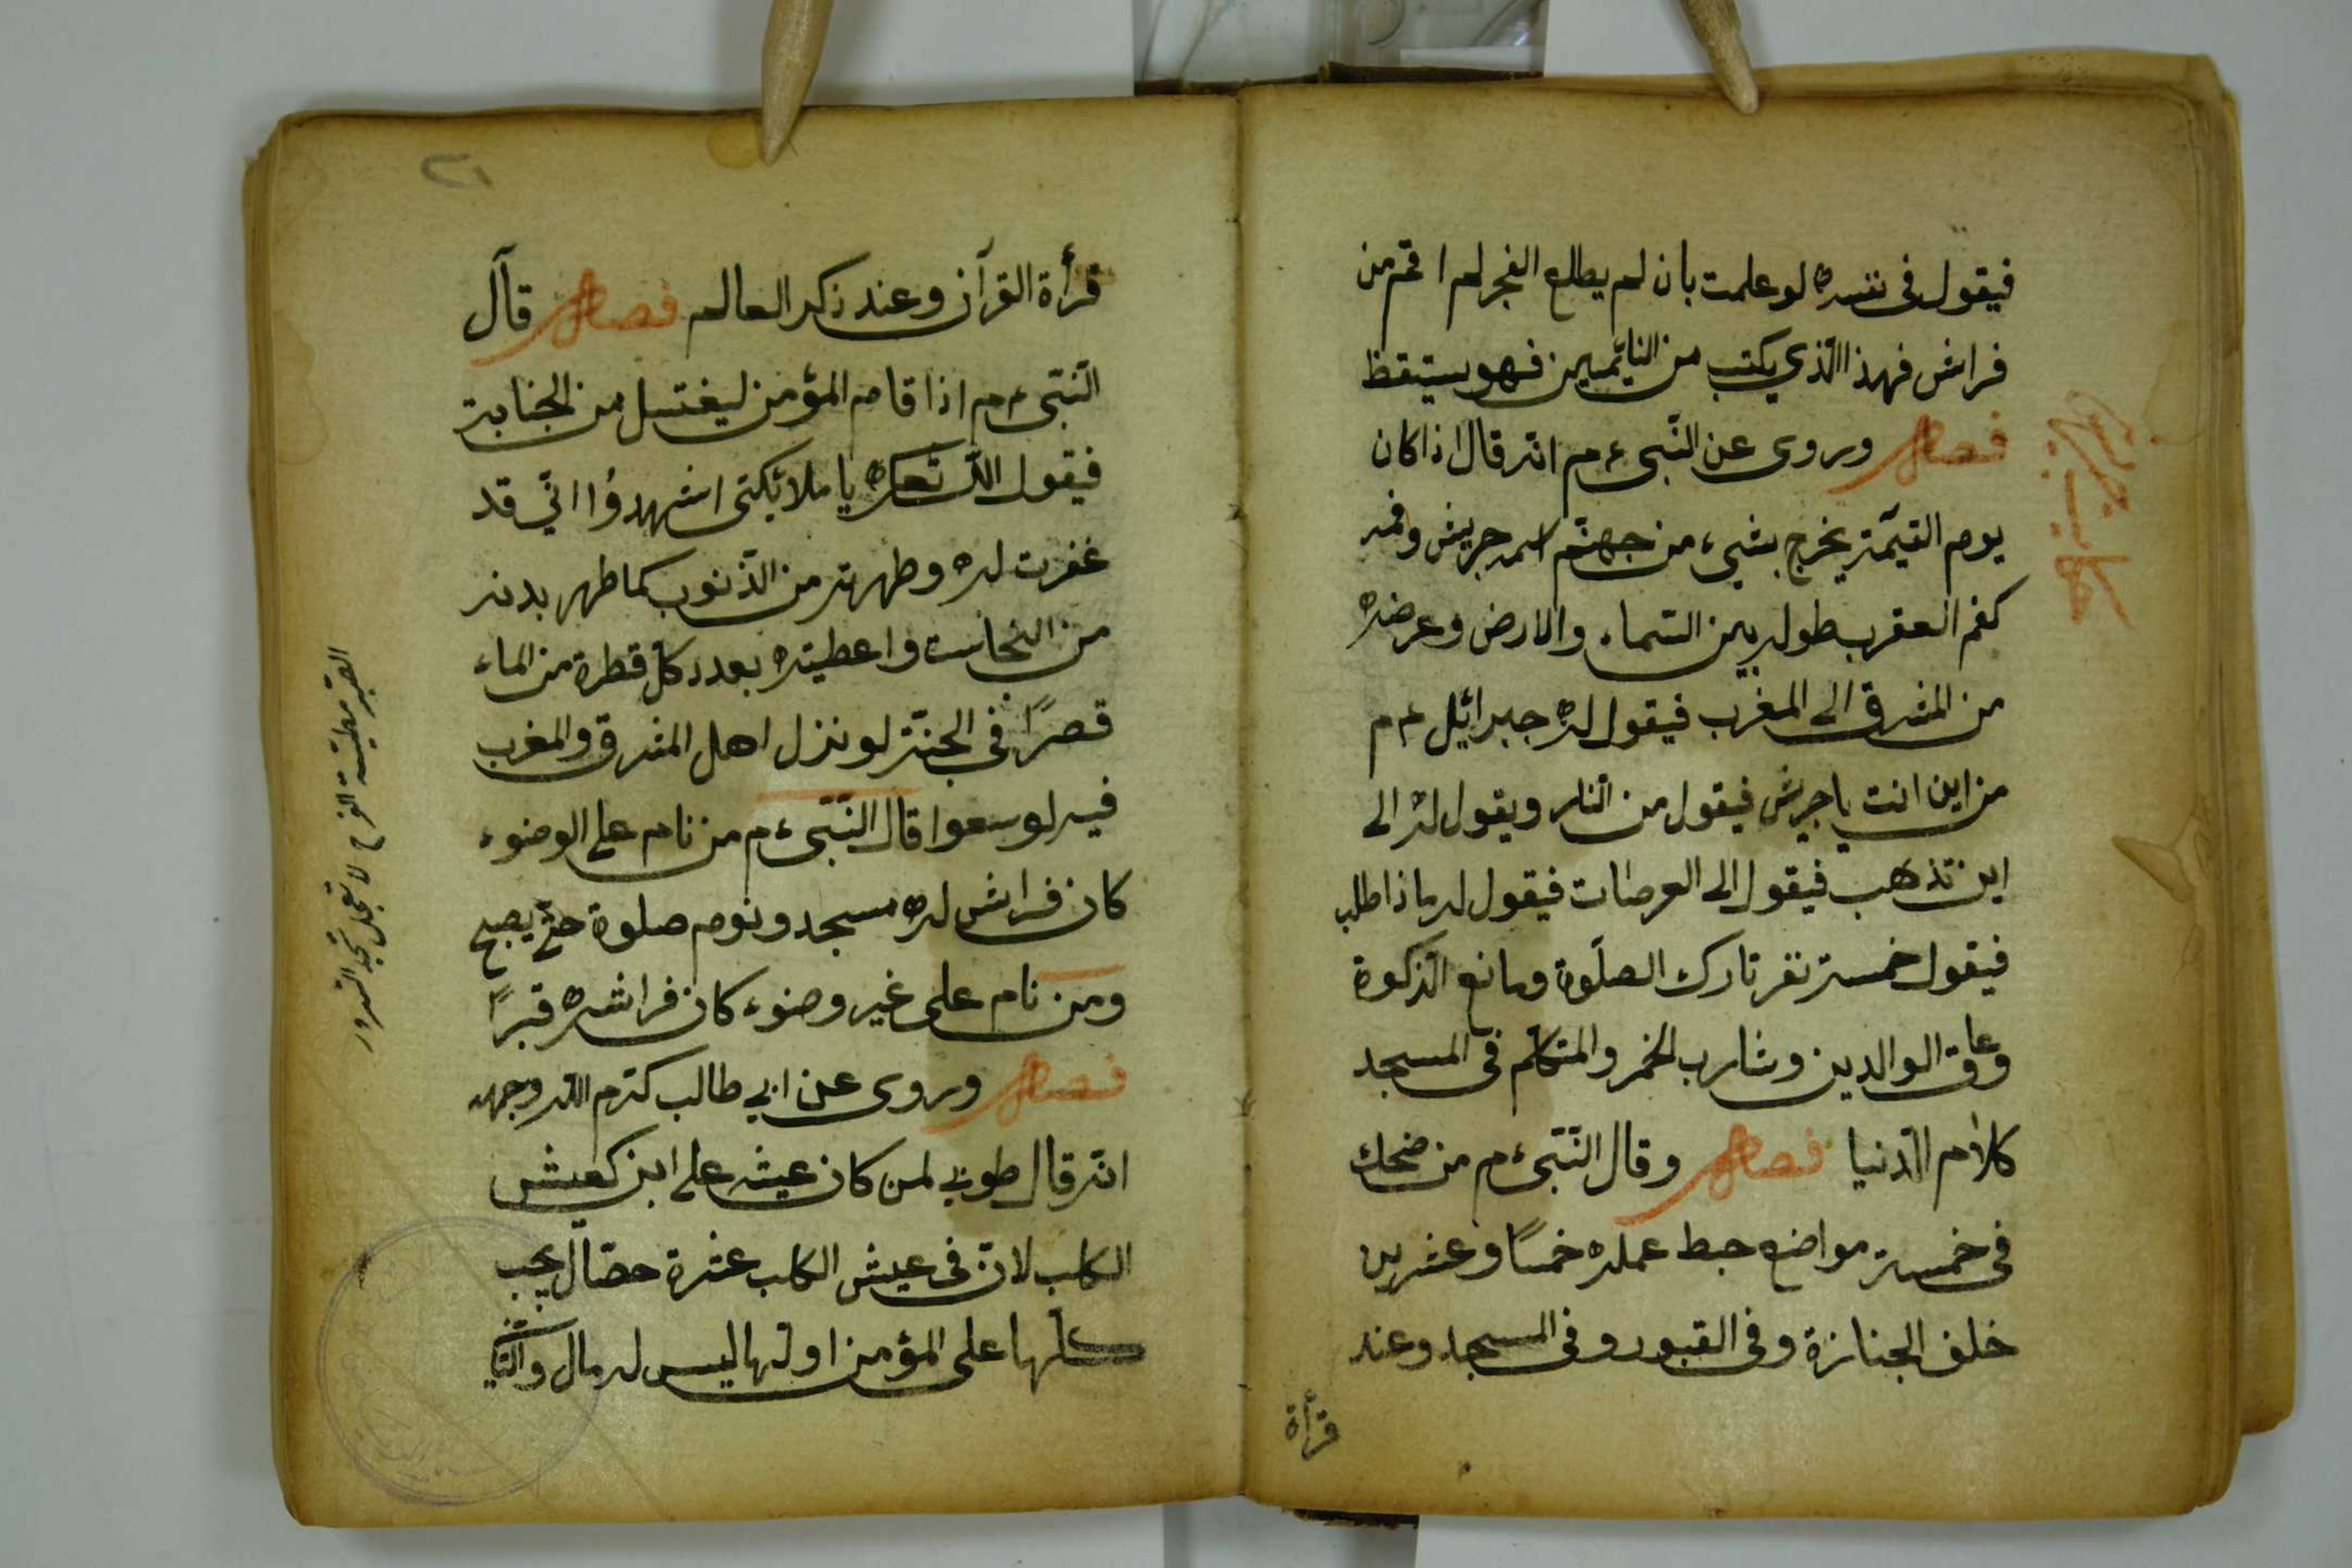 فيقول فى نفسه لو علمت بان لم يطلع الفجر لم اقم من
فراش فهذا الّذي يكتب من النائمين فهو يستيقظ
فصل وروى عن النّبى ءم انّه قال اذا كان
يوم القيٰمة يخرج بشيء من جهنّم اسمه جريش وفمه
كفم العقرب طوله بين السّماء والارض وعرضه
من المشرق الى المغرب فيقول له جبرائيل ءم
من اين انت يا جريش فيقول من النّار ويقول له الى
اين تذهب فيقول الى العرصات فيقول له ماذا طلب
فيقول خمسة نفر تارك الصلٰوة ومانع الزكوة
وعاق الوالدين وشارب الخمر والمتكلّم فى المسجد
كلام الدّنيا فصل وقال النّبىّ ءم من ضحك
فى خمسة مواضع حبط عمله خمسًا وعشرين
خلف الجنازة وفى القبور وفى المسجد وعند
قرأة
حكايت جريش
٢١
قرأة القرآن وعند ذكر العالم فصل قال
النّبى ءم اذا قام المؤمن ليغتسل من الجنابة
فيقول اللّه تعالى يا ملائكتى اشهدؤا انّي قد
غفرت له وطهرته من الذّنوب كما طهر بدنه
من النجاست واعطيته بعدد كلّ قطرة من الماء
قصرًا في الجنّة لو نزل اهل المشرق والمغرب
فيه لوسعوا قال النّبىّ ءم من نام على الوضوء
كان فراش له مسجد ونوم صلوة حتّى يصبح
ومن نام على غير وضوء كان فراشه قبرًا
فصل وروى عن ابي طالب كرّم اللّه وجهه
انّه قال طوبى لمن كان عيشه على ابن كعيش
الكلب لانّ فى عيش الكلب عشرة خصال يجب
كلّها على المؤمن اولها ليس له مال والثّا
الصّبر مطيّة الفرح لا تعجل تجد السّرور